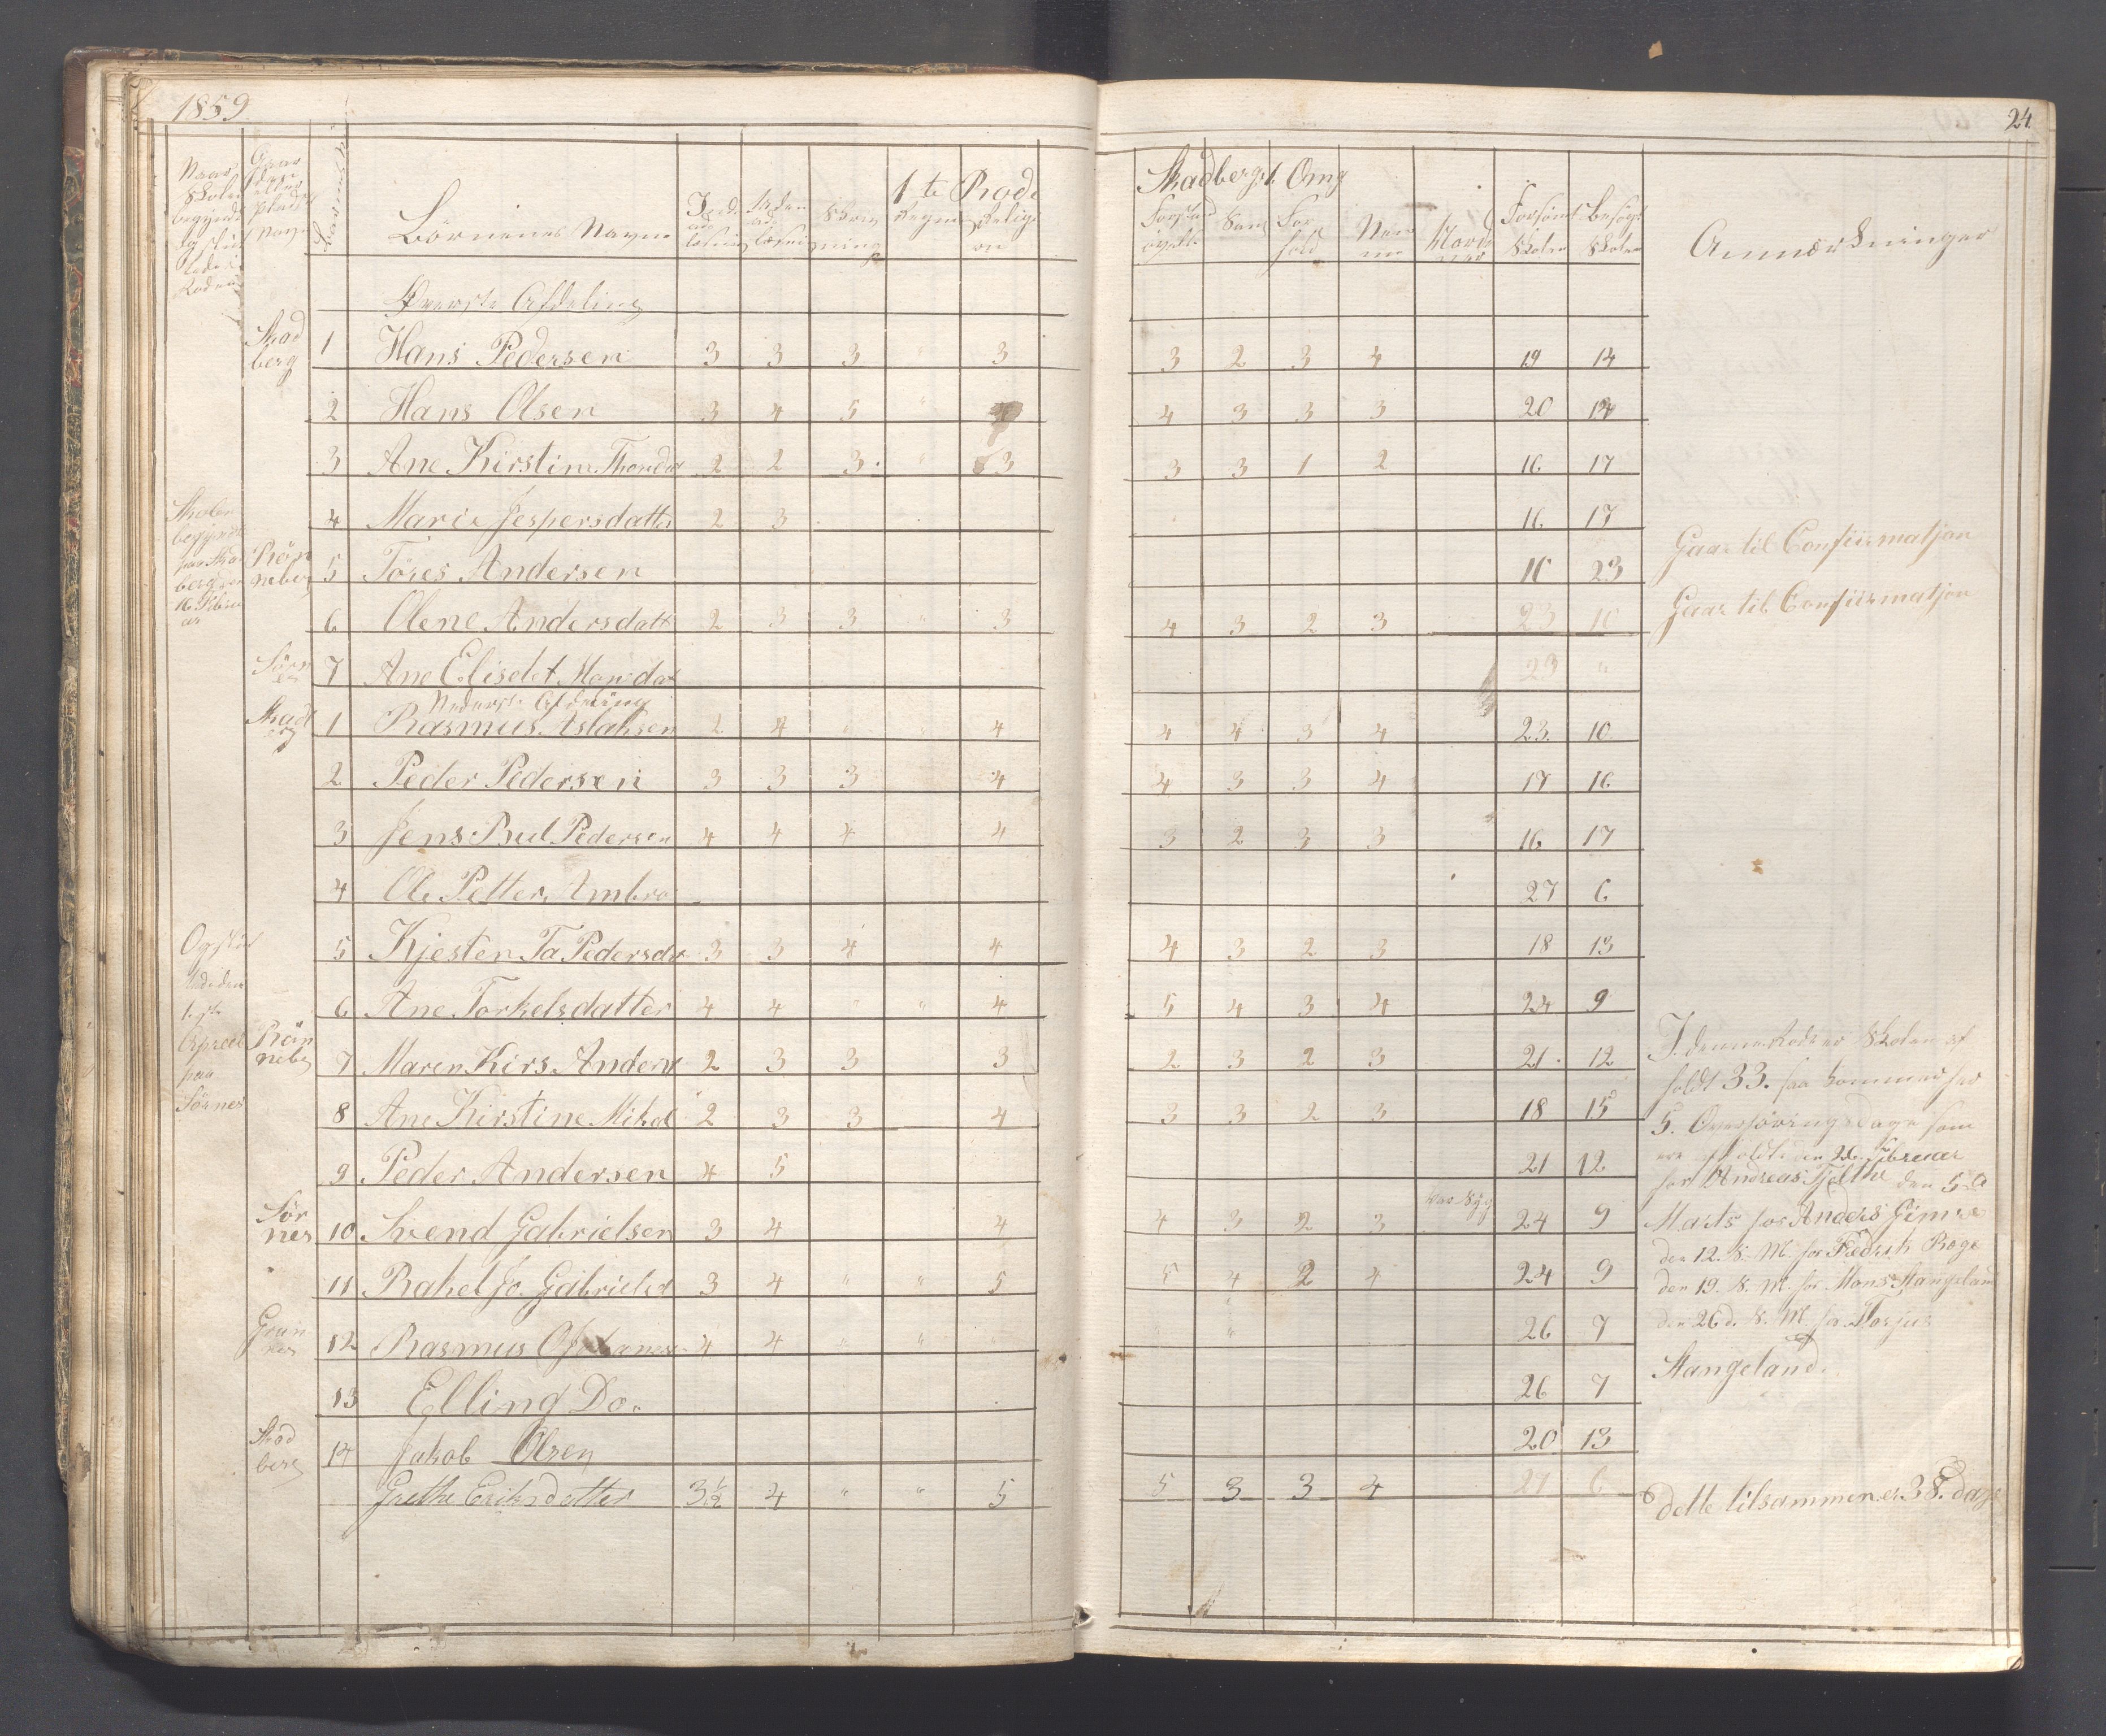 1859
24
1 te Rode
Skadbergs Omg
Naar Skolen begyndt og slut
Gaardene eller Pladsens Navn
Börnenes Navne
Regning Religion
Sang Forhold
Forsömt Skolen Besögt Skolen
Anmærkninger
Överste Afdeling
Skadberg 1 Hans Pedersen 3 3 3 " 3 3 2 3 4 19 14
2 Hans Olsen 3 4 5 " 4 3 3 3 20
3 Ane Kirstine 2 2 3 " 3 3 3 1 2 16 17
4 Marie Jespersdatter 2 3 16 17
Rönneberg 5 Töres Andersen 10 23 Gaar til Confiirmatjon
6 Olene Andersdatt 2 3 3 " 3 4 3 2 3 23 10 Gaar til Confiirmatjon
Sörnes 7 Ane Elisebet 23 "
Nederste Afdeling
Skadberg 1 Rasmus Aslaksen 2 4 " " 4 4 4 3 4 23 10
2 Peder Pedersen 3 3 3 4 4 3 3 4 17 16
3 Jens Bul Pedersen 4 4 4 4 3 2 3 3 16 17
4 Ole Petter Ambro 27 6
5 Kjesten Ta Pedersda 3 3 4 4 4 3 2 3 18 13
6 Ane Torkelsdatter 4 4 " " 4 5 4 3 4 24 9
Rönneb 7 Maren Kirs. Anders 2 3 3 3 2 3 2 3 21 12
8 Ane Kirstine Mikal 2 3 3 4 3 3 2 3 18 15
9 Peder Andersen 4 5 21 12
Sörnes 10 Svend Gabrielsen 3 4 4 4 3 2 3 var Syg 24 9
11 Rakel Jo. Gabrielsd 3 4 " " 5 5 4 2 4 24 9
12 Rasmus 4 4 " " " " " 26 7
13 Elling Do. 26 7
Skadberg 14 Jakob Olsen 20 13
Grethe Eriksdatter 3½ 4 " " 5 5 3 3 4 27 6
Skolen
begyndt
paa Skad
berg den
16 Febru
ar
Og slut
tede den
1ste
Apreel
paa
Sörnes
I denne Rode er Skolen af
holdt 33. saa kommer her
5. Overhöringsdage som
ere afholdt den Februar
hos Andreas Tjelthe den 5 d
Marts hos Anders Gimre
den 12. s. M. hos Fredrik Rege
den 19. s. M. hos Mons Stangeland
den 26 d. s. M. hos Torjus
Stangeland.
dette tilsammen er 38. dage